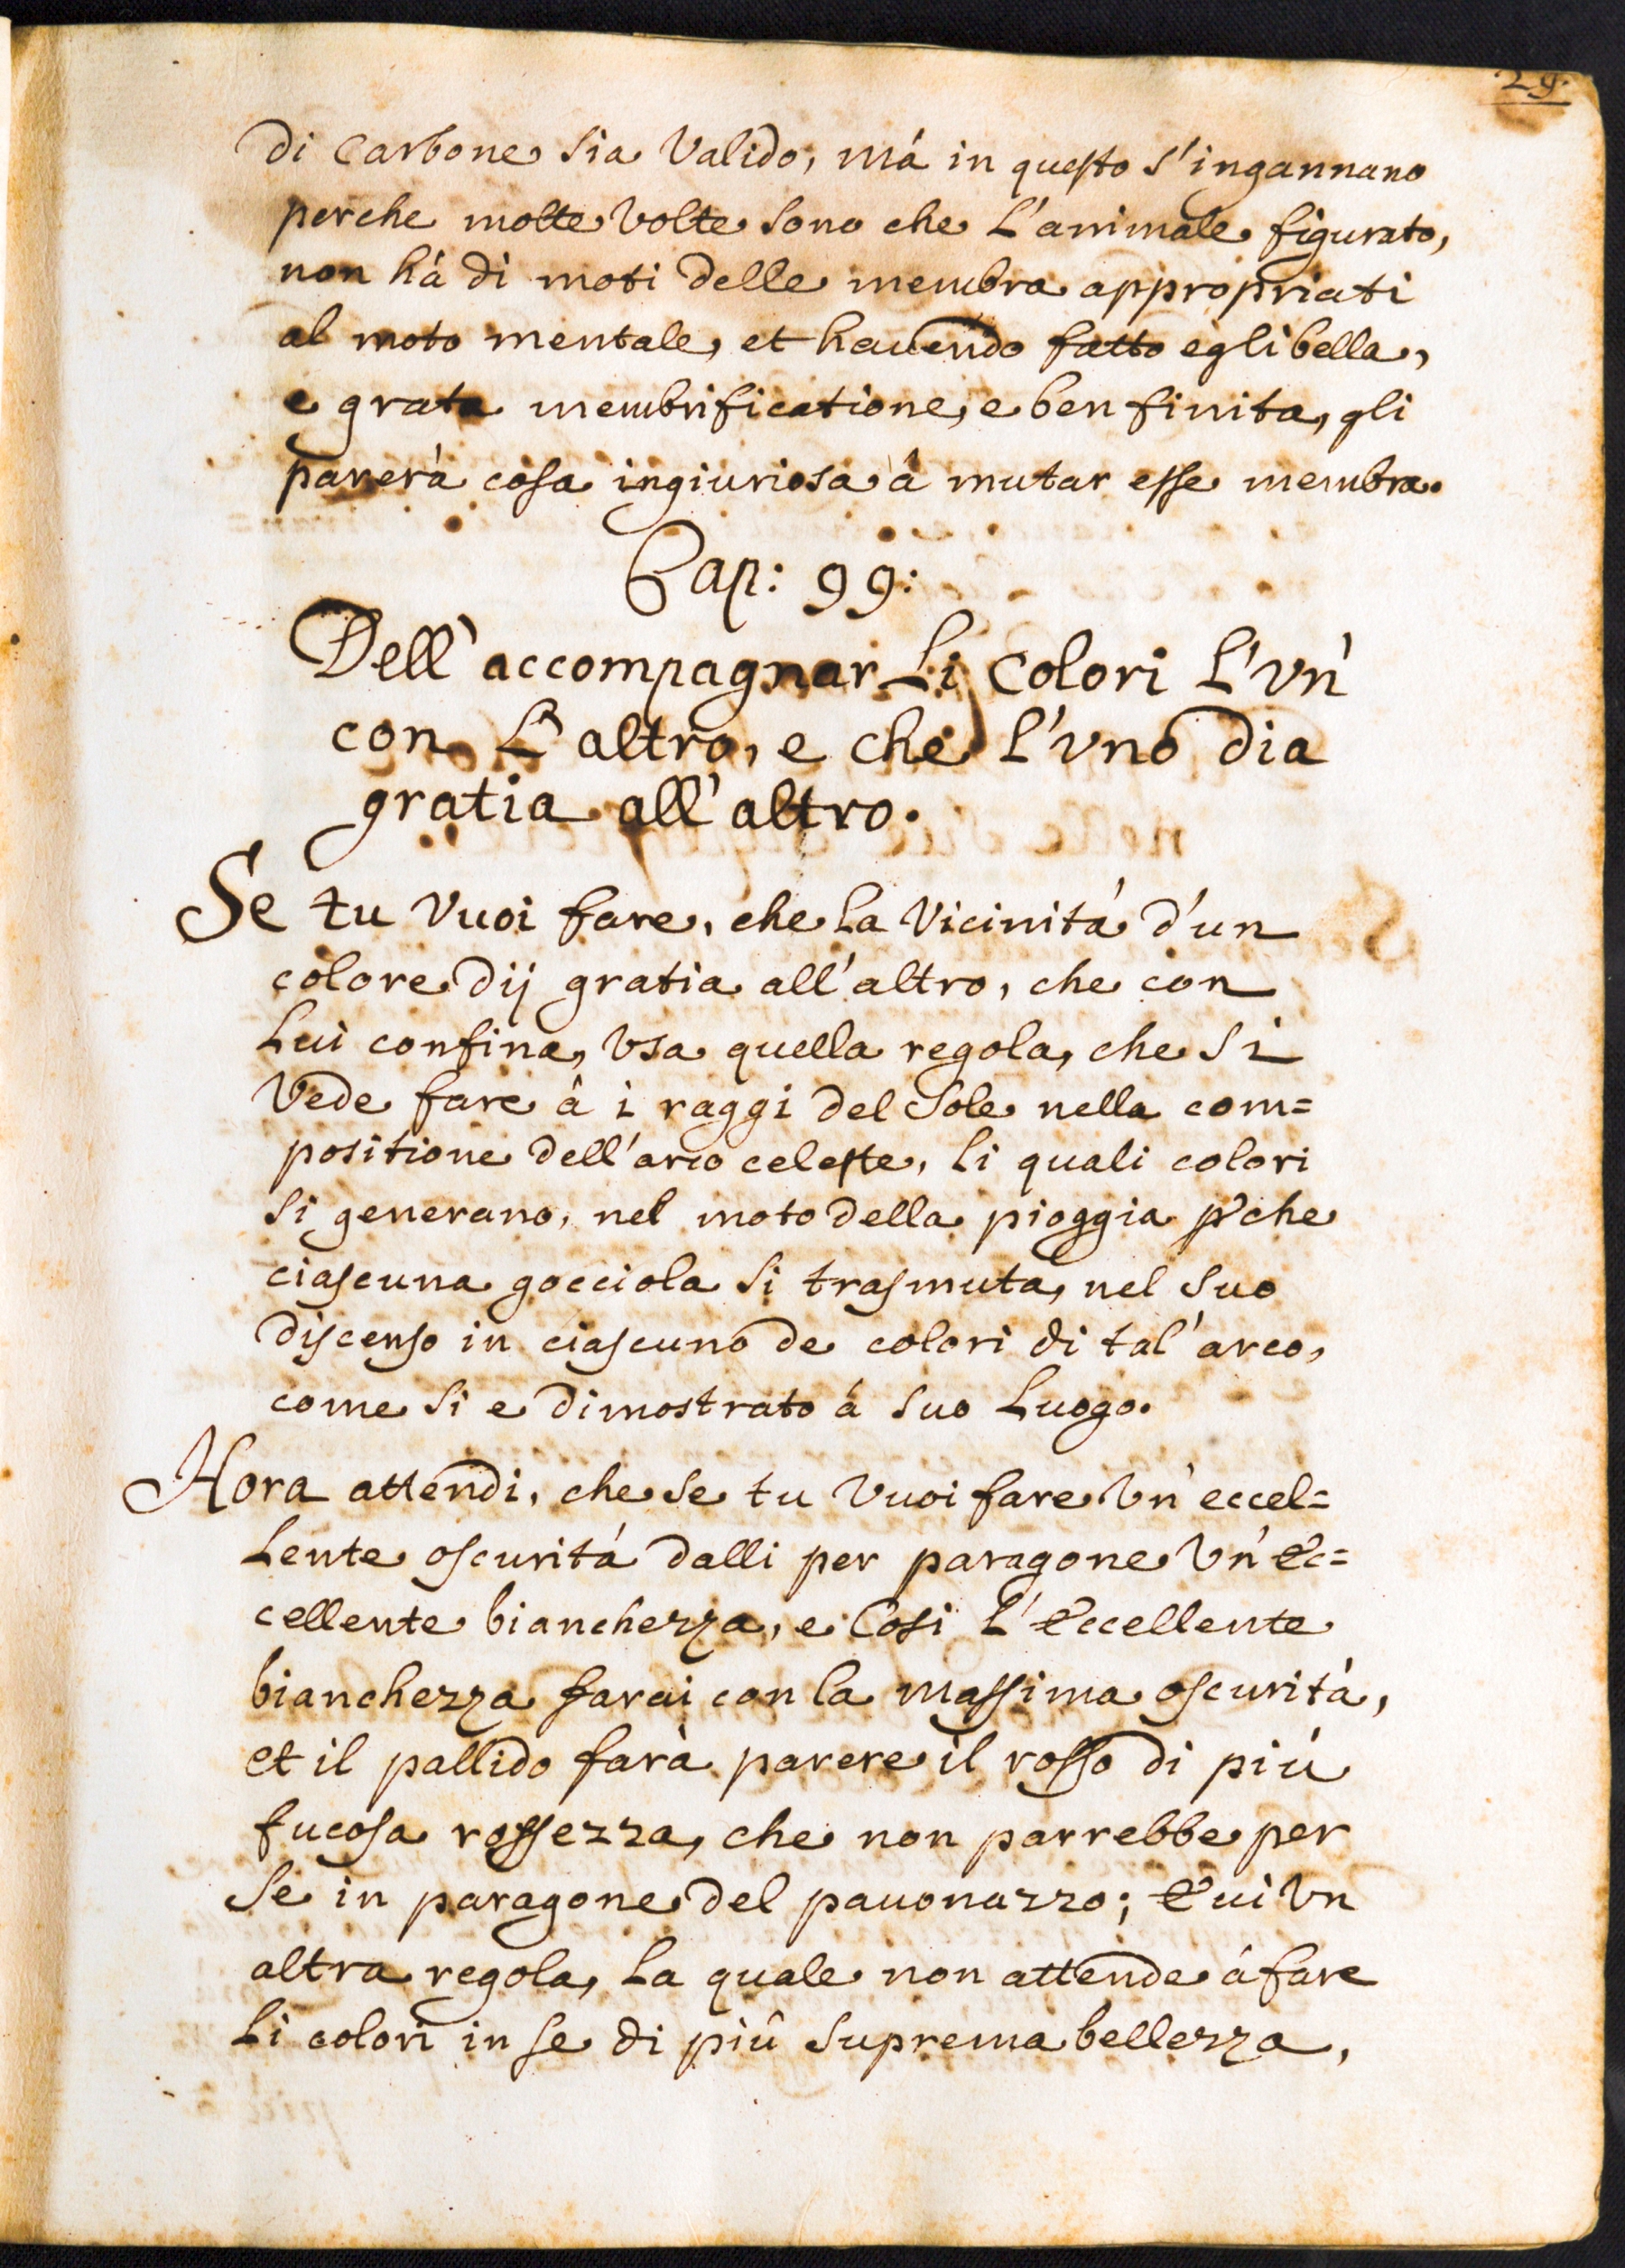 29.
di Carbone sia Valido, mà in questo s'ingannano
perche molte volte sono che L'animale figurato,
non hà di moti delle membra appropriati
al moto mentale, et havendo fatto egli bella,
e grata membrificatione, e ben finita, gli
parerà cosa ingiuriosa à mutar esse membra.
Cap: 99:
Dell'accompagnar Li Colori L'vn'
con L'altro, e che L'vno dia
gratia all'altro.
Se tu Vuoi fare, che La Vicinità d'un
colore dij gratia all'altro, che con
Lui confina, Vsa quella regola, che si
Vede fare à i raggi del Sole nella com=
positione dell'arco celeste, li quali colori
si generano, nel moto della pioggia p'che
ciascuna gocciola si trasmuta, nel suo
discenso in ciascuno de colori di tal'arco,
come si e dimostrato à suo Luogo.
Hora attendi, che se tu Vuoi fare Vn'eccel=
Lente oscurità dalli per paragone Vn'Ec=
cellente bianchezza, e Cosi L'Eccellente
bianchezza farai con la massima oscurità,
et il pallido farà parere il rosso di più
fucosa rossezza, che non parrebbe per
se in paragone del pauonazzo; Eui Vn
altra regola, La quale non attende à fare
Li colori in se di più suprema bellezza,